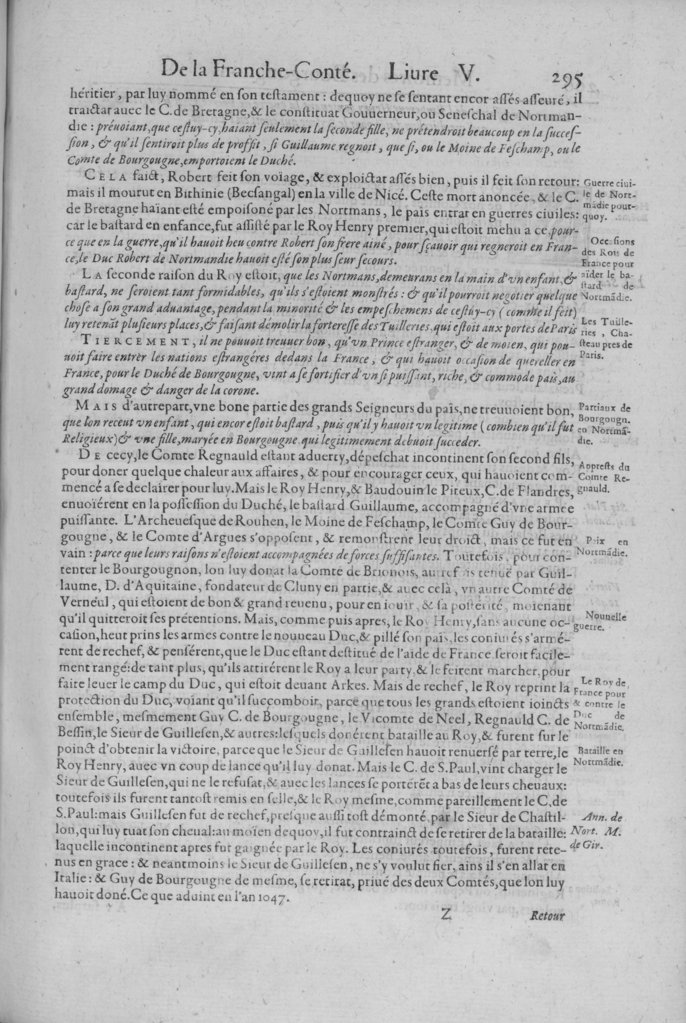 De la Franche-Conté. Liure V. 295
héritier, par luy nommé en son testament : dequoy ne se sentant encor assés asseuré, il
traictar auec le C. de Bretagne, & le constituat Gouuerneur, ou Seneschal de Nortman-
die : préuoiant, que cestuy-cy, haiant seulement la seconde fille, ne prétendroit beaucoup en la succes-
sion, & qu'il sentiroit plus de proffit, si Guillaume regnoit, que si, ou le Moine de Feschamp, ou le
Comte de Bourgougne, emportoient le Duché.
CELA faict, Robert feit son voiage, & exploictat assés bien, puis il feit son retour:
mais il mourut en Bithinie (Becsangal) en la ville de Nicé. Ceste mort anoncée, & le C.
de Bretagne haïant esté empoisoné par les Nortmans, le païs entrar en guerres ciuiles:
car le bastard en enfance, fut assisté par le Roy Henry premier, qui estoit mehu a ce, pour-
ce que en la guerre, qu'il hauoit heu contre Robert son frere ainé, pour sçauoir qui regneroit en Fran-
ce, le Duc Robert de Normandie hauoit esté son plus seur secours.
LA seconde raison du Roy estoit, que les Nortmans, demeurans en la main d'vn enfant, &
bastard, ne seroient tant formidables, qu'ils s'estoient monstrés : & qu'il pourroit negotier quelque
chose a son grand aduantage, pendant la minorité & les empeschemens de cestuy-cy (comme il feit)
luy retenât plusieurs places, & faisant démolir la forteresse des Tuilleries, qui estoit aux portes de Paris
TIERCEMENT, il ne pouuoit treuuer bon, qu'vn Prince estranger, & de moien, qui pou-
uoit faire entrer les nations estrangéres dedans la France, & qui hauoit occasion de quereller en
France, pour le Duché de Bourgougne, vint a se fortifier d'vn si puissant, riche, & commode païs, au
grand domage & danger de la corone.
MAIS d'autrepart, vne bone partie des grands Seigneurs du païs, ne treuuoient bon,
que lon receut vn enfant, qui encor estoit bastard, puis qu'il y hauoit vn legitime (combien qu'il fut
Religieux) & vne fille, maryée en Bourgougne qui legitimement debuoit succeder.
DE cecy, le Comte Regnauld estant aduerty, dépeschat incontinent son second fils,
pour doner quelque chaleur aux affaires, & pour encourager ceux, qui hauoient com-
mencé a se declairer pour luy. Mais le Roy Henry, & Baudouin le Piteux, C. de Flandres,
enuoiérent en la possession du Duché, le bastard Guillaume, accompagné d'vne armée
puissante. L'Archeuesque de Rouhen, le Moine de Feschamp, le Comte Guy de Bour-
gougne, & le Comte d'Argues s'opposent, & remonstrent leur droict, mais ce fut en
vain : parce que leurs raisons n'estoient accompagnées de forces suffisantes. Toutefois, pour con-
tenter le Bourgougnon, lon luy donat la Comté de Brionois, autrefois tenuë par Guil-
laume, D. d'Aquitaine, fondateur de Cluny en partie, & auec celà, vn autre Comté de
Verneul, qui estoient de bon & grand reuenu, pour en iouïr, & sa postérité, moienant
qu'il quitteroit ses prétentions. Mais, comme puis apres, le Roy Henry, sans aucune oc-
casion, heut prins les armes contre le nouueau Duc, & pillé son païs, les coniurés s'armé-
rent de rechef, & pensérent, que le Duc estant destitué de l'aide de France seroit facile-
ment rangé: de tant plus, qu'ils attitérent le Roy a leur party, & le feirent marcher, pour
faire leuer le camp du Duc, qui estoit deuant Arkes. Mais de rechef, le Roy reprint la
protection du Duc, voiant qu'il succomboit, parce que tous les grands estoient ioincts
ensemble, mesmement Guy C. de Bourgougne, le Vicomte de Neel, Regnauld C. de
Bessin, le Sieur de Guillesen, & autres: lesquels donérent bataille au Roy, & furent sur le
poinct d'obtenir la victoire, parce que le Sieur de Guillesen hauoit renuersé par terre, le
Roy Henry, auec vn coup de lance qu'il luy donat. Mais le C. de S. Paul, vint charger le
Sieur de Guillesen, qui ne le refusat, & auec les lances se portérēt a bas de leurs cheuaux:
toutefois ils furent tantost remis en selle, & le Roy mesme, comme pareillement le C. de
S. Paul: mais Guillesen fut de rechef, presque aussi tost démonté, par le Sieur de Chastil-
lon, qui luy tuat son cheual: au moien dequoy, il fut contrainct de se retirer de la bataille:
laquelle incontinent apres fut gaignée par le Roy. Les coniurés toutefois, furent rete-
nus en grace : & neantmoins le Sieur de Guillesen, ne s'y voulut fier, ains il s'en allat en
Italie : & Guy de Bourgougne de mesme, se retirat, priué des deux Comtés, que lon luy
hauoit doné. Ce que aduint en l'an 1047.
Z Retour
Guerre ciui-
le de Nort-
mâdie pour-
quoy.
Occasions
des Rois de
France pour
aider le ba-
stard de
Nortmâdie.
Les Tuille-
ries, Cha-
steau pres de
Paris.
Partiaux de
Bourgougn.
en Nortmâ-
die.
Apprests du
Comte Re-
gnauld.
Paix en
Nortmâdie.
Nouuelle
guerre.
Le Roy de
France pour
& contre le
Duc de
Nortmâdie.
Bataille en
Nortmâdie.
Ann. de
Nort. M.
de Gir.